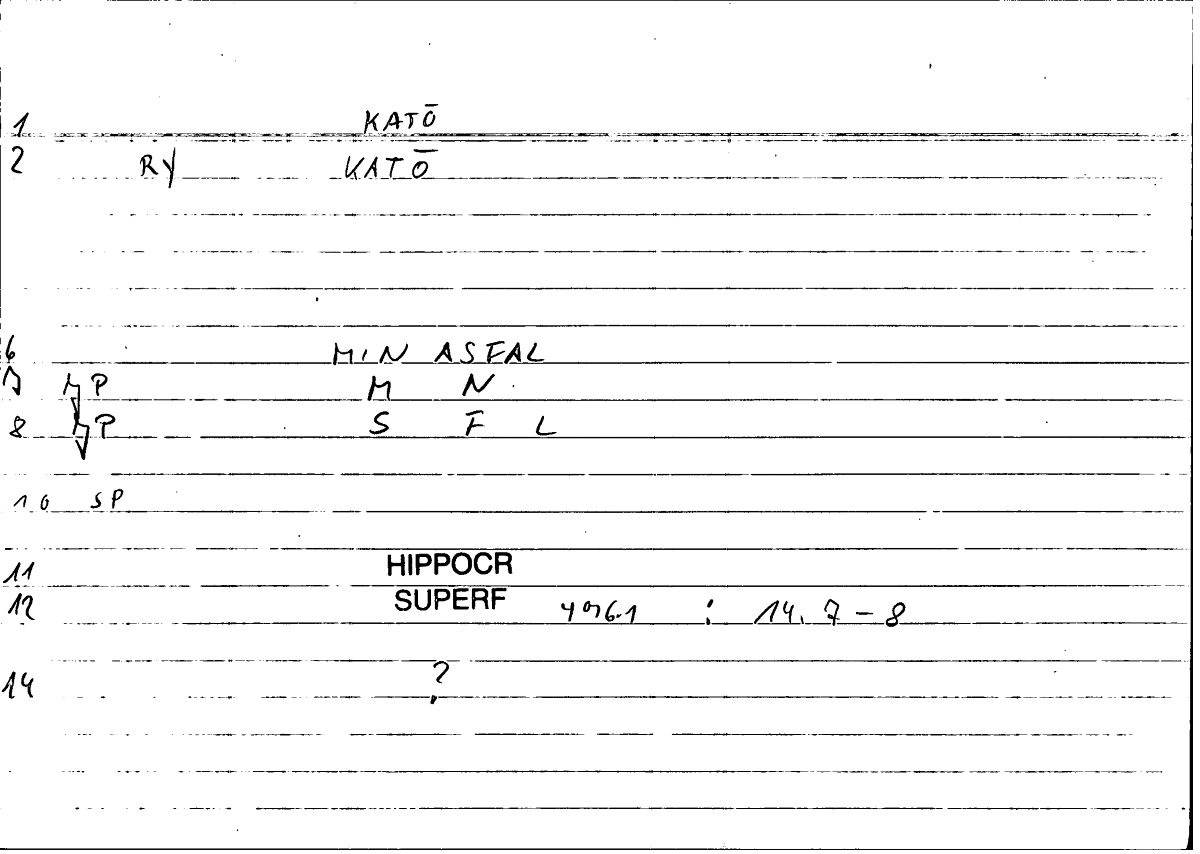 1 KATŌ
2 RY KATŌ
6 MIN ASFAL
7 MP M N
8 MP S F L
10 SP
11 HIPPOCR
12 SUPERF : 14. 7-8
14 ?